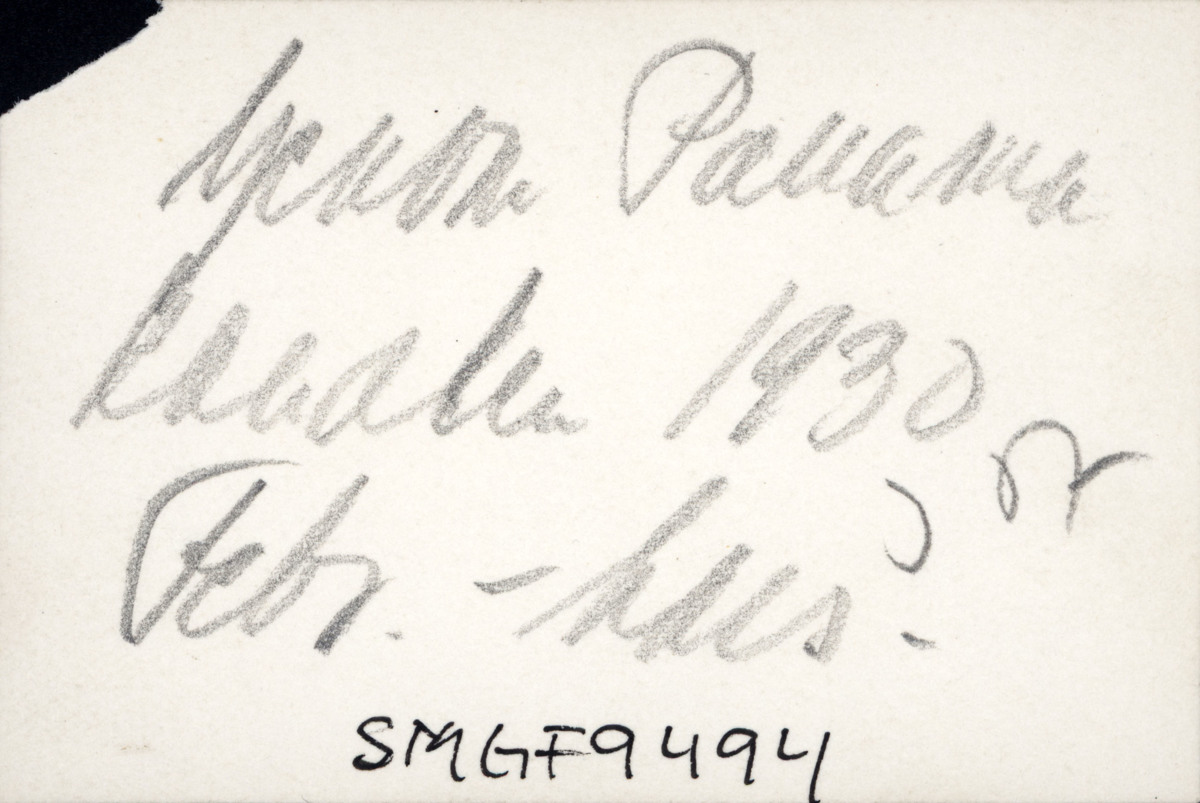 genom Panama
kanalen 1930
Febr. - Mars. ?
SMGF9494